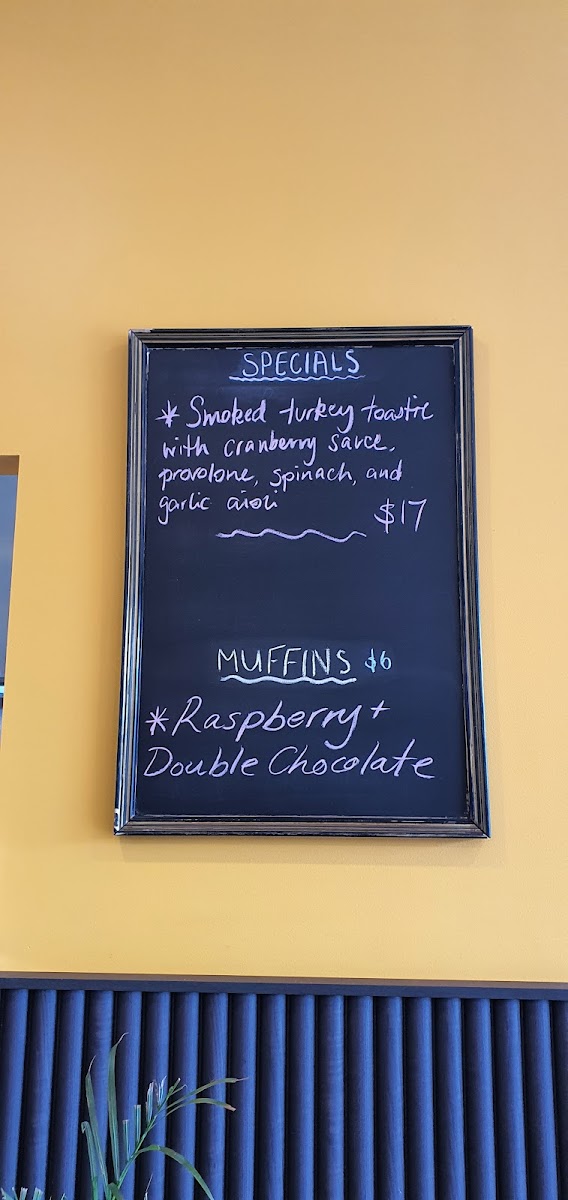 SPECIALS
* Smoked turkey toastie
with cranberry sauce,
provolone, spinach, and
garlic aioli
$17
MUFFINS $6
* Raspberry +
Double Chocolate